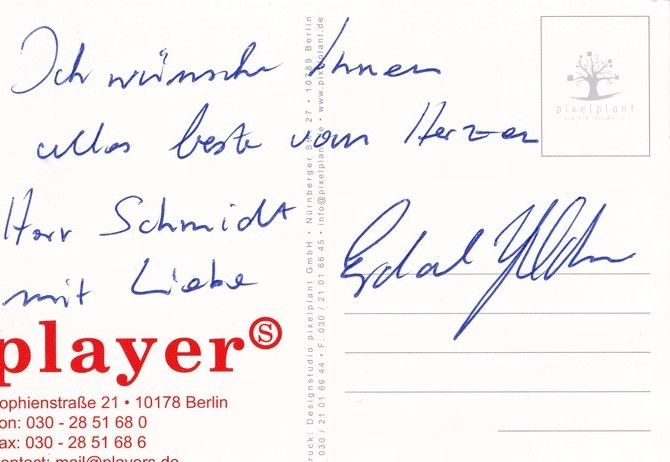 Ich wünsche Ihnen
alles beste vom Herzen
Herr Schmidt
mit Liebe
Erdal Yıldız
players
ophienstraße 21 • 10178 Berlin
on: 030 - 28 51 68 0
ax: 030 - 28 51 68 6
ontact: mail@players.de
ruck: Designstudio pixelplant GmbH • Nürnberger Str. 27 • 10789 Berlin
030 / 21 01 66 44 • F. 030 / 21 01 66 45 • info@pixelplant.de • www.pixelplant.de
pixelplant